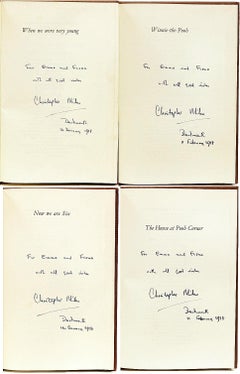 When we were very young
For Emma and Fiona
with all good wishes
Christopher Milne
Dartmouth
February 1978
Winnie-the-Pooh
For Emma and Fiona
with all good wishes
Christopher Milne
Dartmouth
February 1978
Now we are Six
For Emma and Fiona
with all good wishes
Christopher Milne
Dartmouth
February 1978
The House at Pooh Corner
For Emma and Fiona
with all good wishes
Christopher Milne
Dartmouth
February 1978